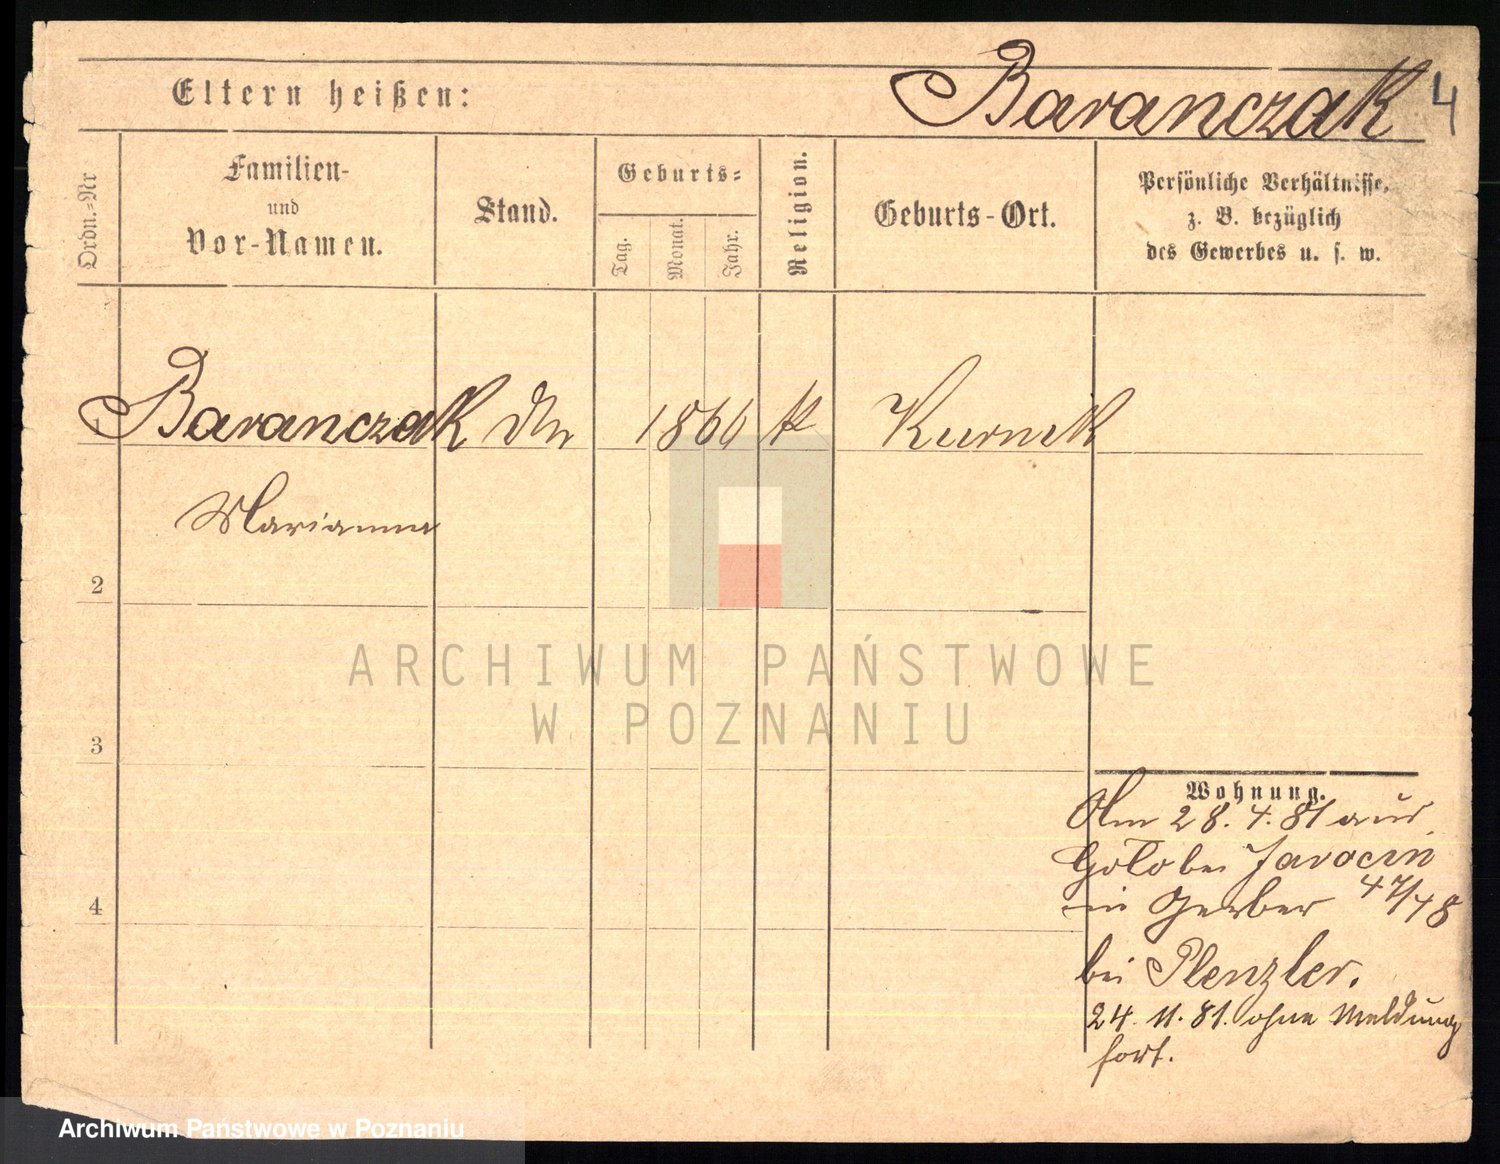 Eltern heißen:
Baranczak
4
Ordn.-Nr
Familien-
und
Vor-Namen.
Stand.
Geburts-
Tag.
Monat.
Jahr.
Religion.
Geburts-Ort.
Persönliche Verhältnisse,
z. B. bezüglich
des Gewerbes u. s. w.
Baranczak
1860
k
Kurnik
Marianna
2
ARCHIWUM PAŃSTWOWE
W POZNANIU
3
Wohnung.
Am 28. 4. 81 aus
bei Jarocin
in Gerber 47/48
4
bei Plenzler.
24. 11. 81. ohne Meldung
fort.
Archiwum Państwowe w Poznaniu